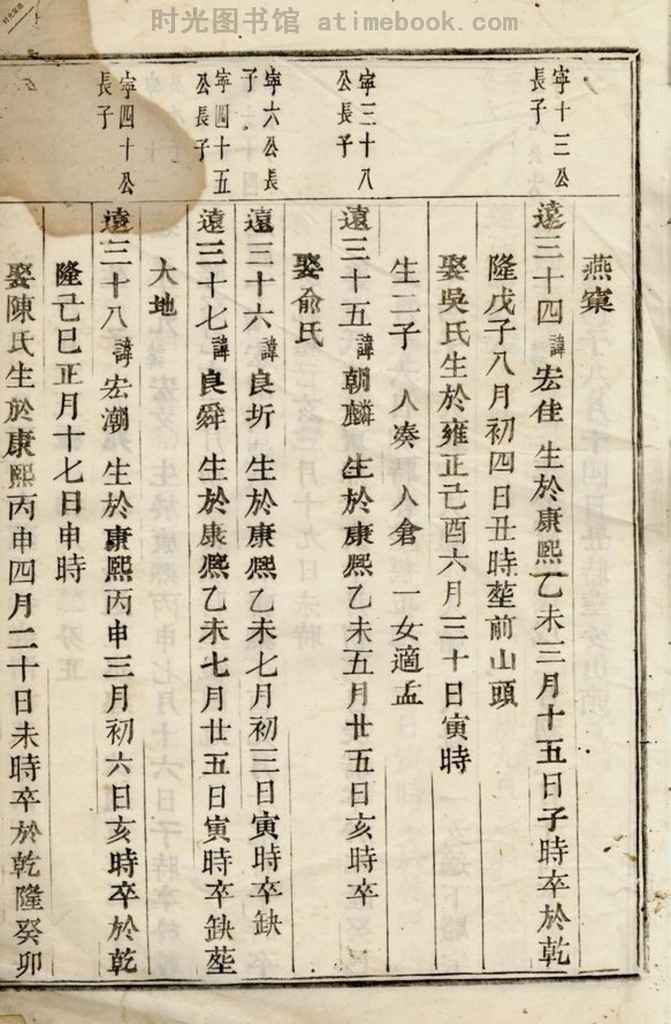 时光图书馆 atimebook.com
燕窠
寧十三公
長子
遠三十四諱宏佳 生於康熙乙未三月十五日子時卒於乾
隆戊子八月初四日丑時塟前山頭
娶吳氏生於雍正己酉六月三十日寅時
生二子 人凑 人倉 一女適孟
寧三十八
公長子
遠三十五諱朝麟 生於康熙乙未五月廿五日亥時卒
娶俞氏
寧六公長
子
遠三十六諱良圻 生於康熙乙未七月初三日寅時卒缺
寧四十五
公長子
遠三十七諱良舜 生於康熙乙未七月廿五日寅時卒缺塟
大地
寧四十公
長子
遠三十八諱宏潮 生於康熙丙申三月初六日亥時卒於乾
隆己巳正月十七日申時
娶陳氏生於康熙丙申四月二十日未時卒於乾隆癸卯